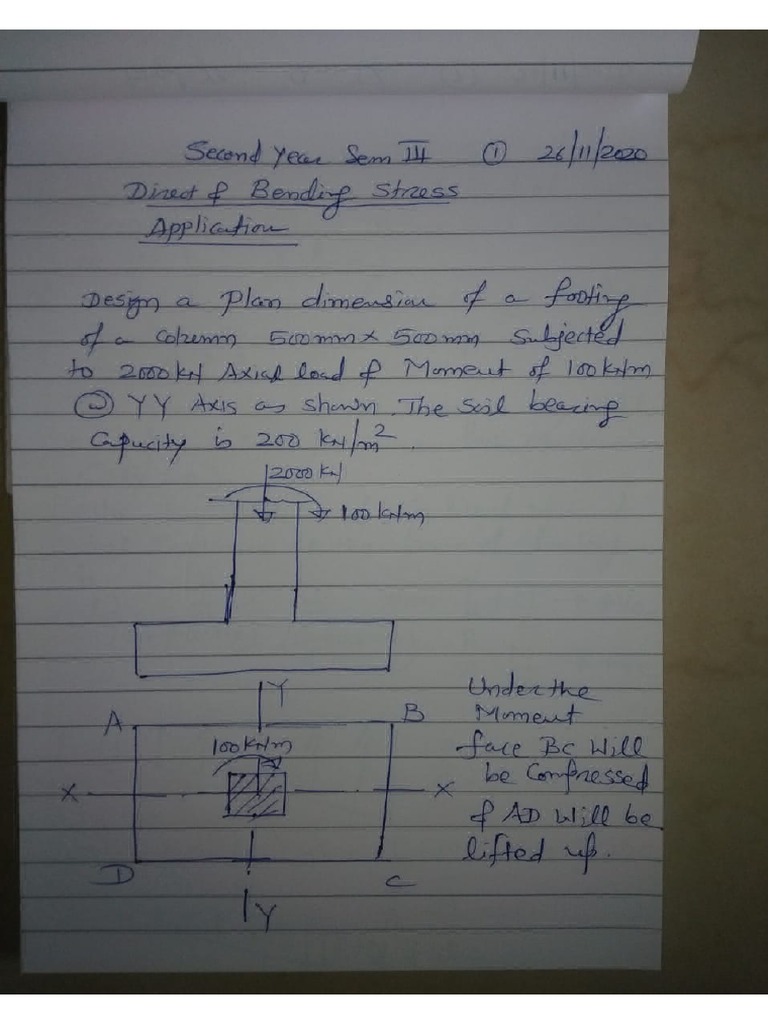 Second Year Sem III ① 26/11/2020
Direct & Bending Stress
Application
Design a Plan dimension of a footing
of a Column 500mm x 500mm Subjected
to 2000kN Axial load & Moment of 100kNm
@ YY Axis as shown. The Soil bearing
Capacity is 200 kN/m².
2000kN
100kNm
Y
A
B
100kNm
X
X
D
C
Y
Under the
Moment
face BC Will
be Compressed
& AD Will be
lifted up.